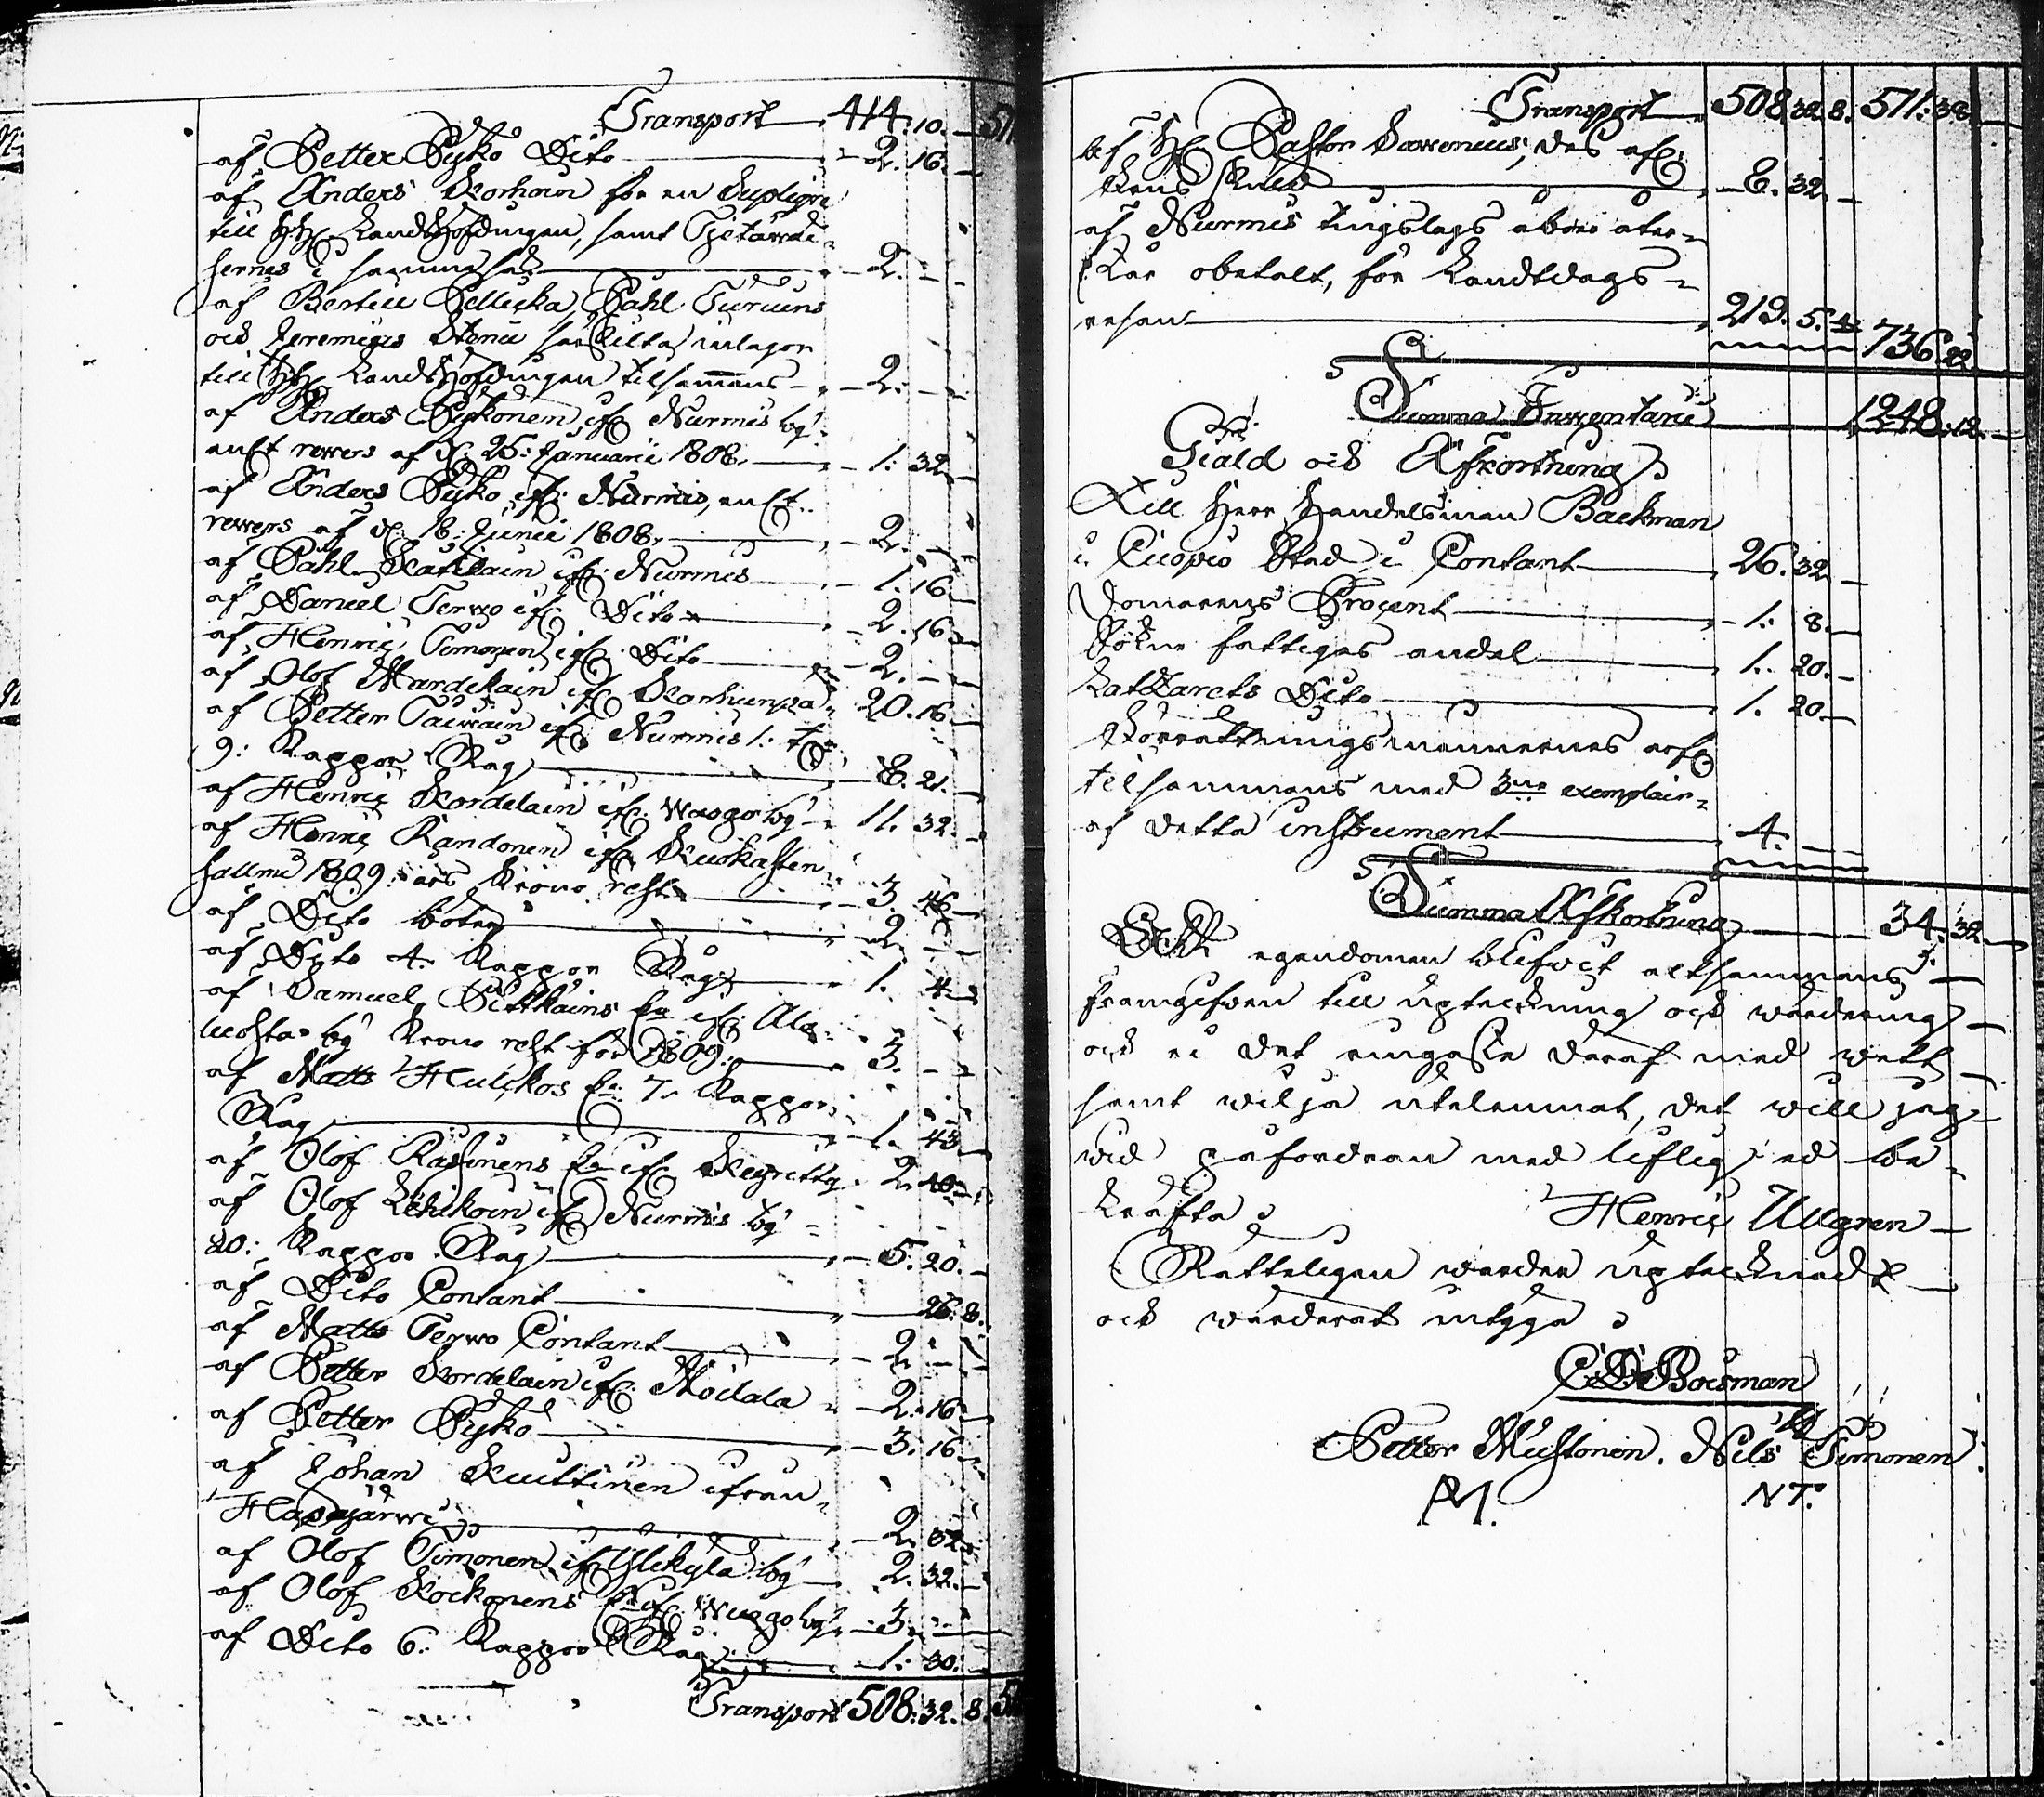 Transport 414. 10. — 511
af Petter Pyko Dito — 2. 16. —
af Anders Korhoin för en Supligve
till HH Landshöfdingen, samt
i — 2. — —
af Bertill Pellicka, Påhl Turuins
och Jeremias särskilta inlagor
till HH Landshöfdingen tilsammans — 2. — —
af Anders Pykonen ifr. Nurmis by
enl:t revers af d. 25: Januarii 1808 — 1. 32. —
af Anders Pyko ifr. Nurmis, enl:t
revers af d. 18: Junii 1808. — 2. — —
af Påhl Katilain ifr. Nurmis — 1. 16. —
af Daniel Terwo ifr. Dito — 2. 16. —
af Henric Timonen ifr. Dito — 2. — —
af Olof Mardikain ifr. — 20. 16. —
af Petter Taiwain ifr. Nurmis 1: T:a
9: Kappor Råg — 8. 21. —
af Henric Kordelain ifr. Wuogo by — 11. 32. —
af Henric Randonen ifr. Kuokasten
salmi 1809: års Krono rest — 3. 46. —
af Dito böter — 2. — —
af Dito 4. Kappor Råg — 1. 4. —
af Samuel Pittkains Ea ifr. Ala
luosta by Krono rest för 1809: — 3. — —
af Matts Hulckos Ea 7. Kappor
Råg — 1. 43. —
af Olof Räsinens Ea ifr. — 2. 40. —
af Olof Lehikoin ifr. Nurmis by
20: Kappor Råg — 5. 20. —
af Dito Contant — 26. 8.
af Matts Terwo Contant — 2. — —
af Petter Kordelain ifr. — 2. 16. —
af Petter Pyko — 3. 16. —
af Johan Kuittinen ifrån
Hapajärwi — 2. 32. —
af Olof Timonen ifr. Ylikylä by — 2. 32. —
af Olof Kockonens Ea ifr. Wuogo by — 3. — —
af Dito 6. Kappor Råg — 1. 30. —
Transport 508. 32. 8. 51
Transport 508. 32. 8. 511. 38. —
af H. Pastor
— 8. 32. —
af Nurmis tingslags åboer åter
står obetalt, för Landtdags
resan — 219. 5. 4. 736. 22
Summa Inventarii — 1248. 12. —
Giäld och Afkortning
Till Herr Handelsman Backman
i Cuopio Stad i Contant — 26. 32. —
Domarens Procent — 1. 8. —
Sokne fattigas andel — 1. 20. —
Latzarets Dito — 1. 20. —
Förrättningsmännernes arf:
tilsammans med 3:ne exemplair
af detta instrument — 4. — —
Summa Afkortning — 34. 32. —
Att egendomen blifwit altsammans
framgifwen till upteckning och wärdering
och ei det ringaste deraf med wett
samt wilja utelemnat, det will jag
wid påfordran med liflig ed be
kräfta
Henric Ullgren
Rätteligen warder upteknadt
och wärderat intyga
Boisman
Petter Mustonen. Nils Timonen
PM. NT.